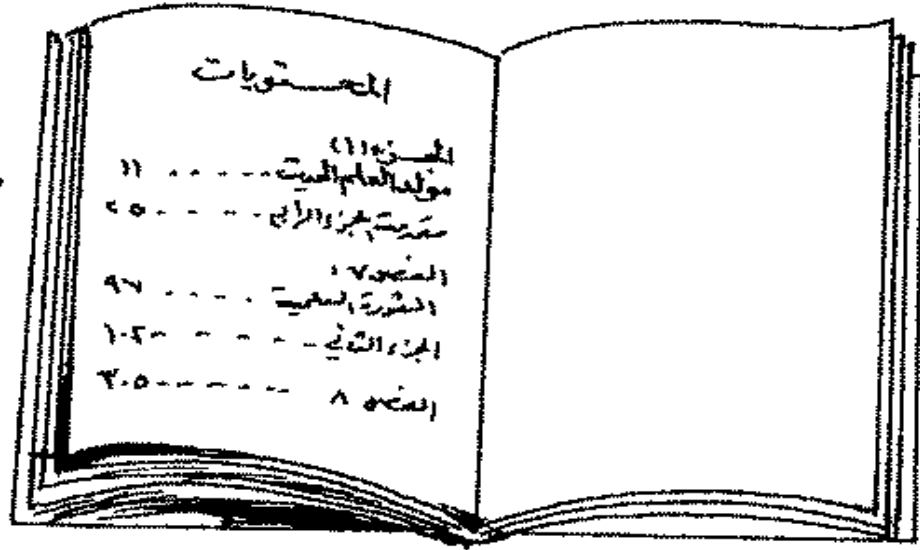 المحتويات
الجزء (١)
مولد العلم الحديث ١١
مقدمة الجزء ٢٥
الفصل ٧:
الثورة العلمية ٩٧
الجزء الثاني ١٠٢
الفصل ٨ ٣٠٥